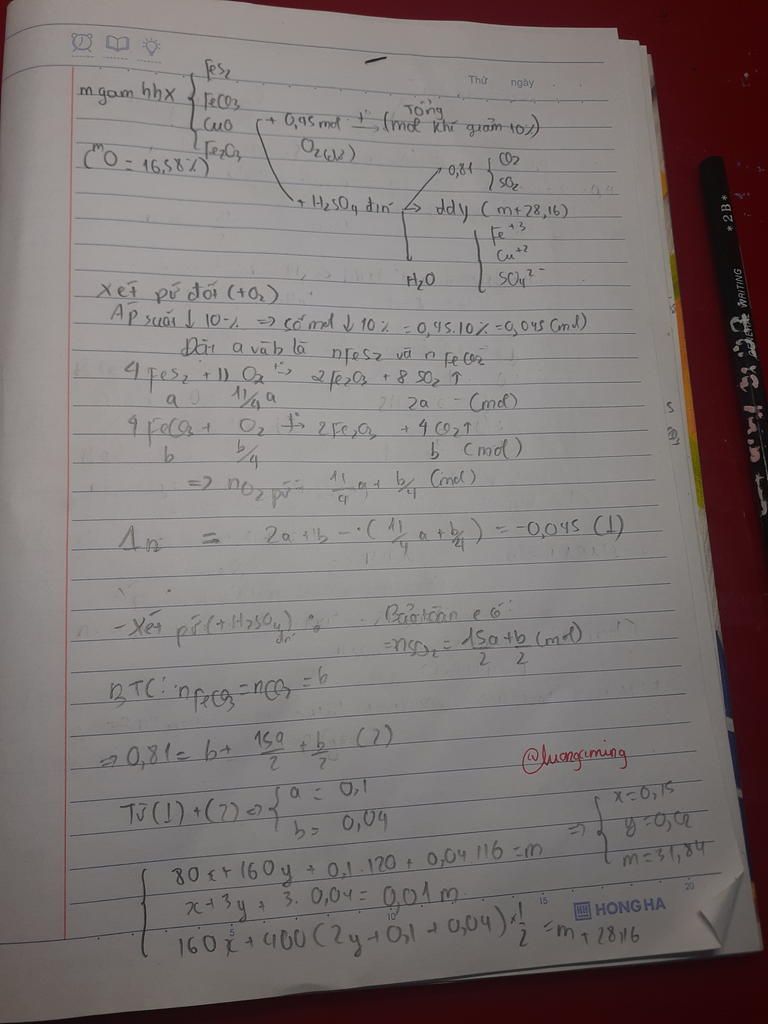 Thứ ngày
m gam hhX { FeS2
FeCO3
CuO
Fe2O3
(mO = 16,58%)
+ 0,45 mol O2 (dư) t° → (Tổng mol khí giảm 10%)
+ H2SO4 đn → 0,81 { CO2
SO2
ddY (m+28,16)
Fe+3
Cu+2
SO4 2-
H2O
Xét pứ đốt (+O2)
Áp suất ↓ 10% => số mol ↓ 10% = 0,45.10% = 0,045 (mol)
Đặt a và b là nFeS2 và nFeCO3
4FeS2 + 11O2 t°→ 2Fe2O3 + 8SO2 ↑
a 11/4a 2a (mol)
4FeCO3 + O2 t°→ 2Fe2O3 + 4CO2 ↑
b b/4 b (mol)
=> nO2 pứ = 11/4 a + b/4 (mol)
Δn = 2a + b - (11/4 a + b/4) = -0,045 (1)
- Xét pứ (+H2SO4) đn : Bảo toàn e có:
= nSO2 = 15a/2 + b/2 (mol)
BTC: nFeCO3 = nCO2 = b
=> 0,81 = b + 15a/2 + b/2 (2)
@luongxming
Từ (1) + (2) => { a = 0,1
b = 0,04
{ 80x + 160y + 0,1.120 + 0,04.116 = m
x + 3y + 3.0,04 = 0,01m
160x + 400(2y + 0,1 + 0,04) × 1/2 = m + 28,16
=> { x = 0,15
y = 0,02
m = 31,84
HH HONG HA
5 10 15 20
*2B*
WRITING